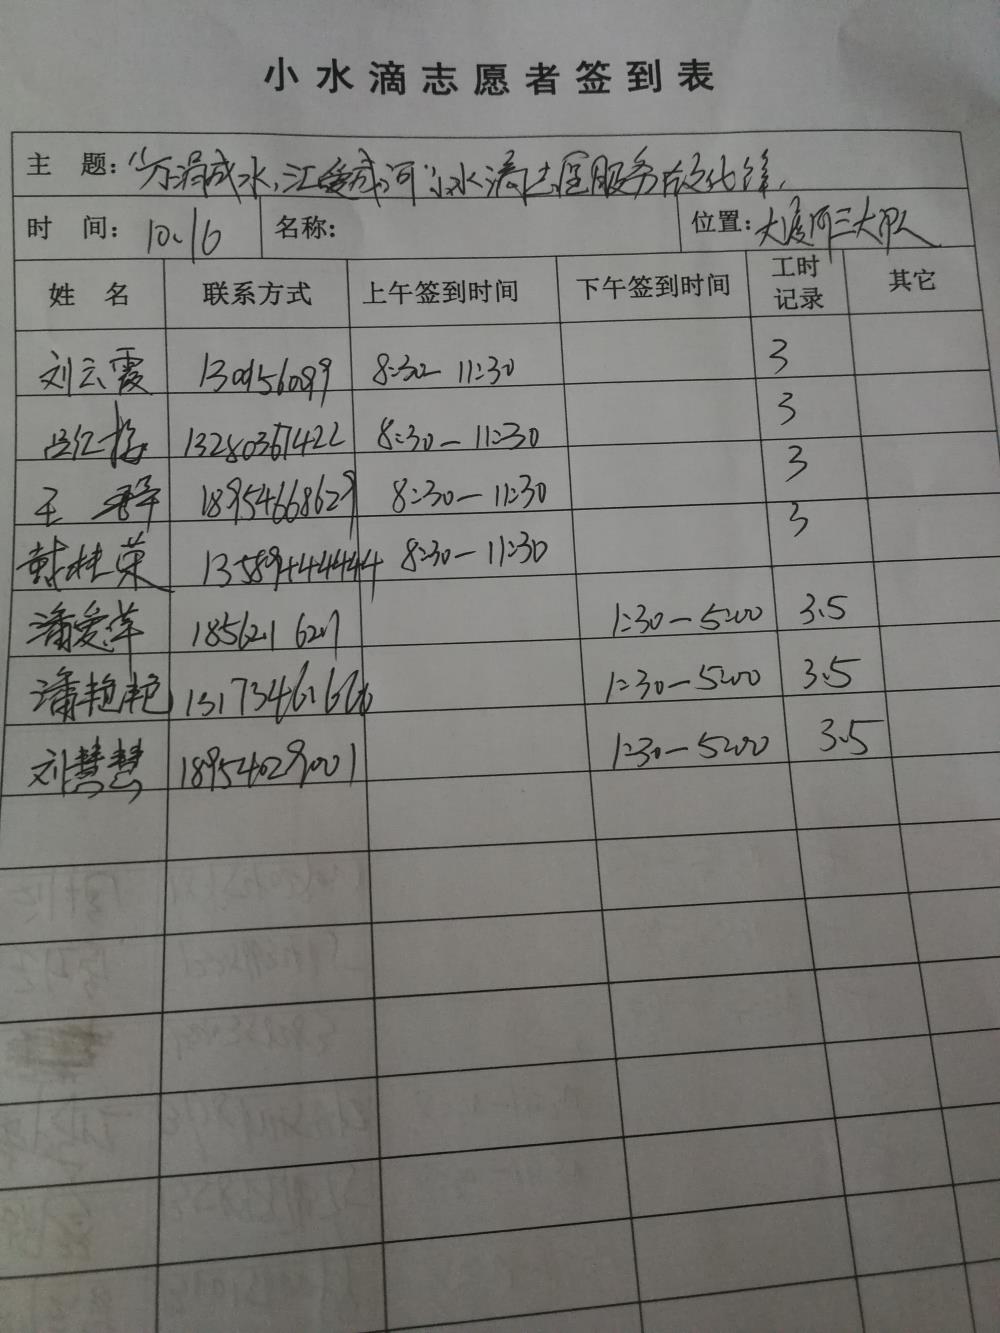 小水滴志愿者签到表
主 题: "点滴成水,汇爱成河"小水滴志愿服务
时 间: 10.16 名称: 位置: 大渡河三大队
姓 名 联系方式 上午签到时间 下午签到时间 工时记录 其它
刘云霞 8:30- 11:30 3
13280367422 8:30-11:30 3
王 18954668629 8:30-11:30 3
韩桂荣 13589444444 8:30-11:30 3
潘爱萍 1:30-5:00 3.5
潘艳艳 1:30-5:00 3.5
刘慧慧 18954029001 1:30-5:00 3.5